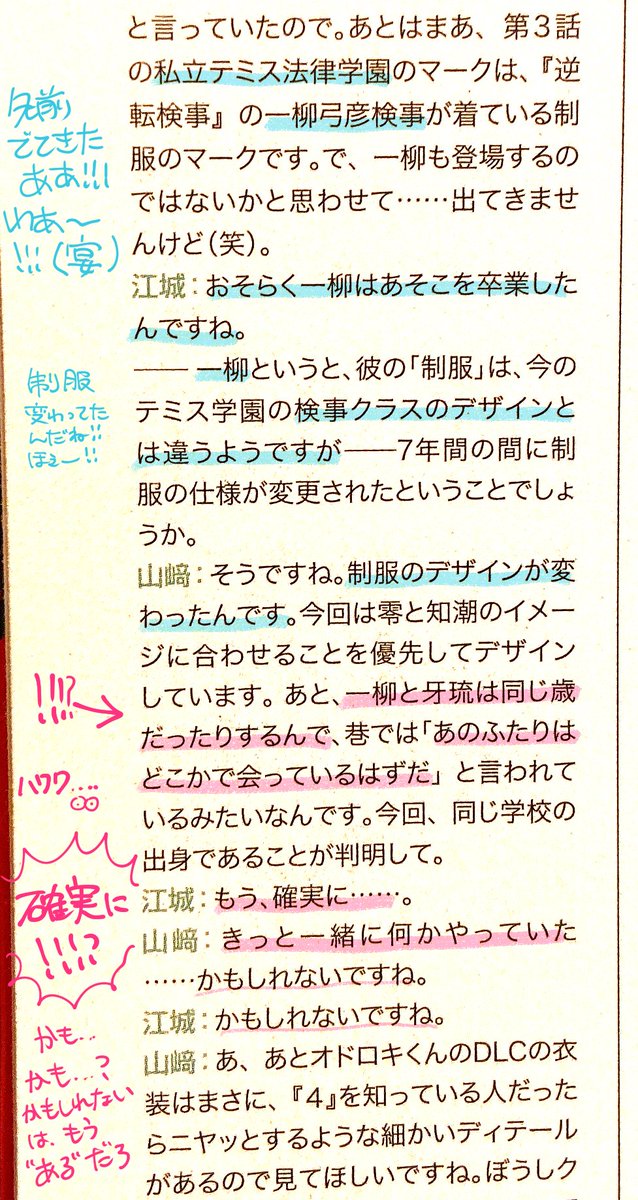 と言っていたので。あとはまあ、第3話
の私立テミス法律学園のマークは、『逆
転検事』の一柳弓彦検事が着ている制
服のマークです。で、一柳も登場するの
ではないかと思わせて……出てきませ
んけど(笑)。
江城：おそらく一柳はあそこを卒業した
んですね。
―― 一柳というと、彼の「制服」は、今の
テミス学園の検事クラスのデザインと
は違うようですが――7年間の間に制
服の仕様が変更されたということでしょ
うか。
山﨑：そうですね。制服のデザインが変
わったんです。今回は零と知潮のイメー
ジに合わせることを優先してデザイン
しています。あと、一柳と牙琉は同じ歳
だったりするんで、巷では「あのふたりは
どこかで会っているはずだ」と言われて
いるみたいなんです。今回、同じ学校の
出身であることが判明して。
江城：もう、確実に……。
山﨑：きっと一緒に何かやっていた
……かもしれないですね。
江城：かもしれないですね。
山﨑：あ、あとオドロキくんのDLCの衣
装はまさに、『4』を知っている人だった
らニヤッとするような細かいディテール
があるので見てほしいですね。ぼうしク
名前
でてきた
ああ!!!
わあ～
!!!(宴)
制服
変わってた
んだね!!
ほぇー!!
!!!?
ハワワ….
確実に
!!!?
かも…
かも…?
かもしれない
は、もう
"ある"だろ